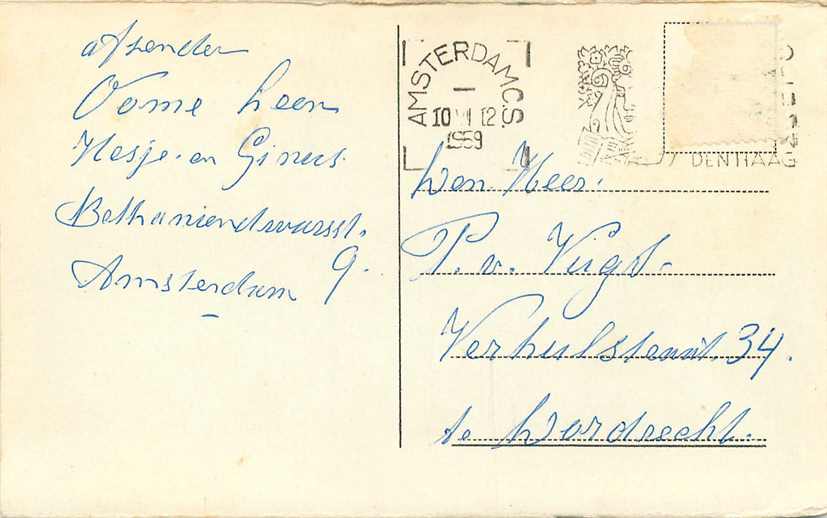 afzender
Oome Leen
Hesje en Ginus.
Bethaniendwarsst.
9.
Amsterdam
AMSTERDAM C.S.
10 VI 12
1959
DEN HAAG
Den Heer.
P. v. Vugt
Verhulststraat. 34.
te Dordrecht.